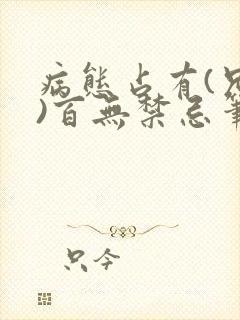 病態占有(兄
)百無禁忌筆
只今